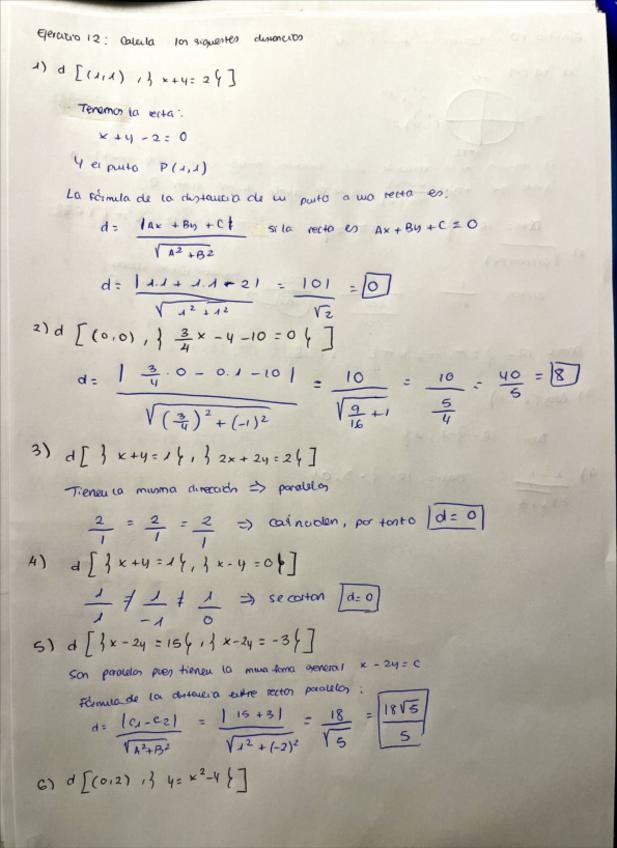 Ejercicio 12: Calcula los siguientes distancias
1) d [(1,1) , { x+y= 2 }]
Tenemos la recta:
x + y - 2 = 0
Y el punto P(1,1)
La Fórmula de la distancia de un punto a una recta es:
d = |Ax + By + C| / √A² + B² si la recta es Ax + By + C = 0
d = |1·1 + 1·1 - 2| / √1² + 1² = |0| / √2 = 0
2) d [(0,0) , { 3/4 x - y - 10 = 0 } ]
d = | 3/4 · 0 - 0·1 - 10 | / √(3/4)² + (-1)² = 10 / √9/16 + 1 = 10 / 5/4 = 40/5 = 8
3) d[ { x+y = 1 } , { 2x + 2y = 2 } ]
Tienen la misma dirección => paralelos
2/1 = 2/1 = 2/1 => coinciden, por tanto d = 0
4) d [ { x+y = 1 } , { x-y = 0 } ]
1/1 ≠ 1/-1 ≠ 1/0 => se cortan d=0
5) d [ { x-2y = 15 } , { x-2y = -3 } ]
Son paralelos pues tienen la misma forma general x - 2y = C
Fórmula de la distancia entre rectas paralelas :
d = |C1 - C2| / √A²+B² = | 15 + 3 | / √1² + (-2)² = 18 / √5 = 18√5 / 5
6) d [(0,2) , { y = x² - 4 } ]